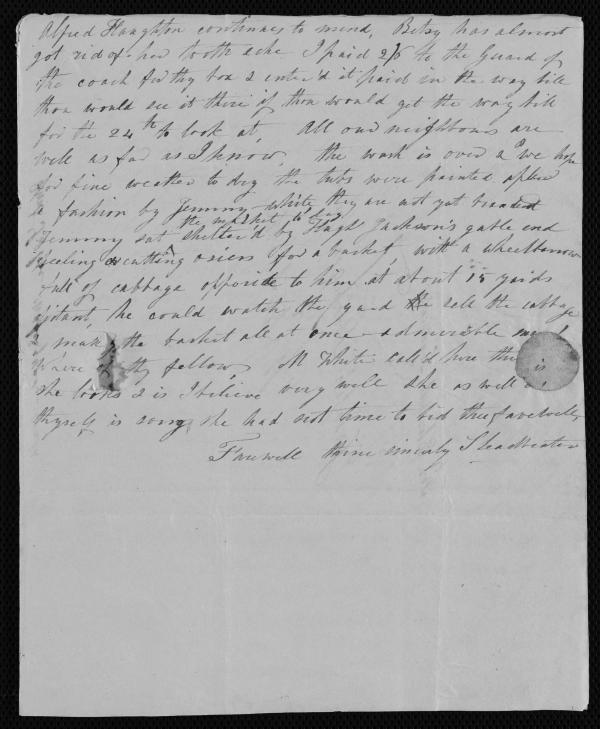 Alfred Haughton continues to mend, Betsy has almost
got rid of her tooth ache I paid 2/6 to the Guard of
the coach for thy box & enter'd it paid in the way bill
thou would see it there if thou would get the way bill
for the 24th to look at, All our neighbours are
well as far as I know, the wash is over & we hope
for fine weather to dry the tubs were painted after
a fashion by Jemmy White they are not yet
the market to day
Jemmy sat shelter'd by Hugh Jackson's gable end
peeling & cutting osiers for a basket, with a wheelbarrow
full of cabbage opposite to him at about 15 yards
distant, he could watch the sell the cabbage
& make the basket all at once admirable
thy fellow, M White call'd here
she looks & is I believe very well she as well as
thyself is sorry she had not time to bid thee farewell,
Farewell thine sincerely S Leadbeater